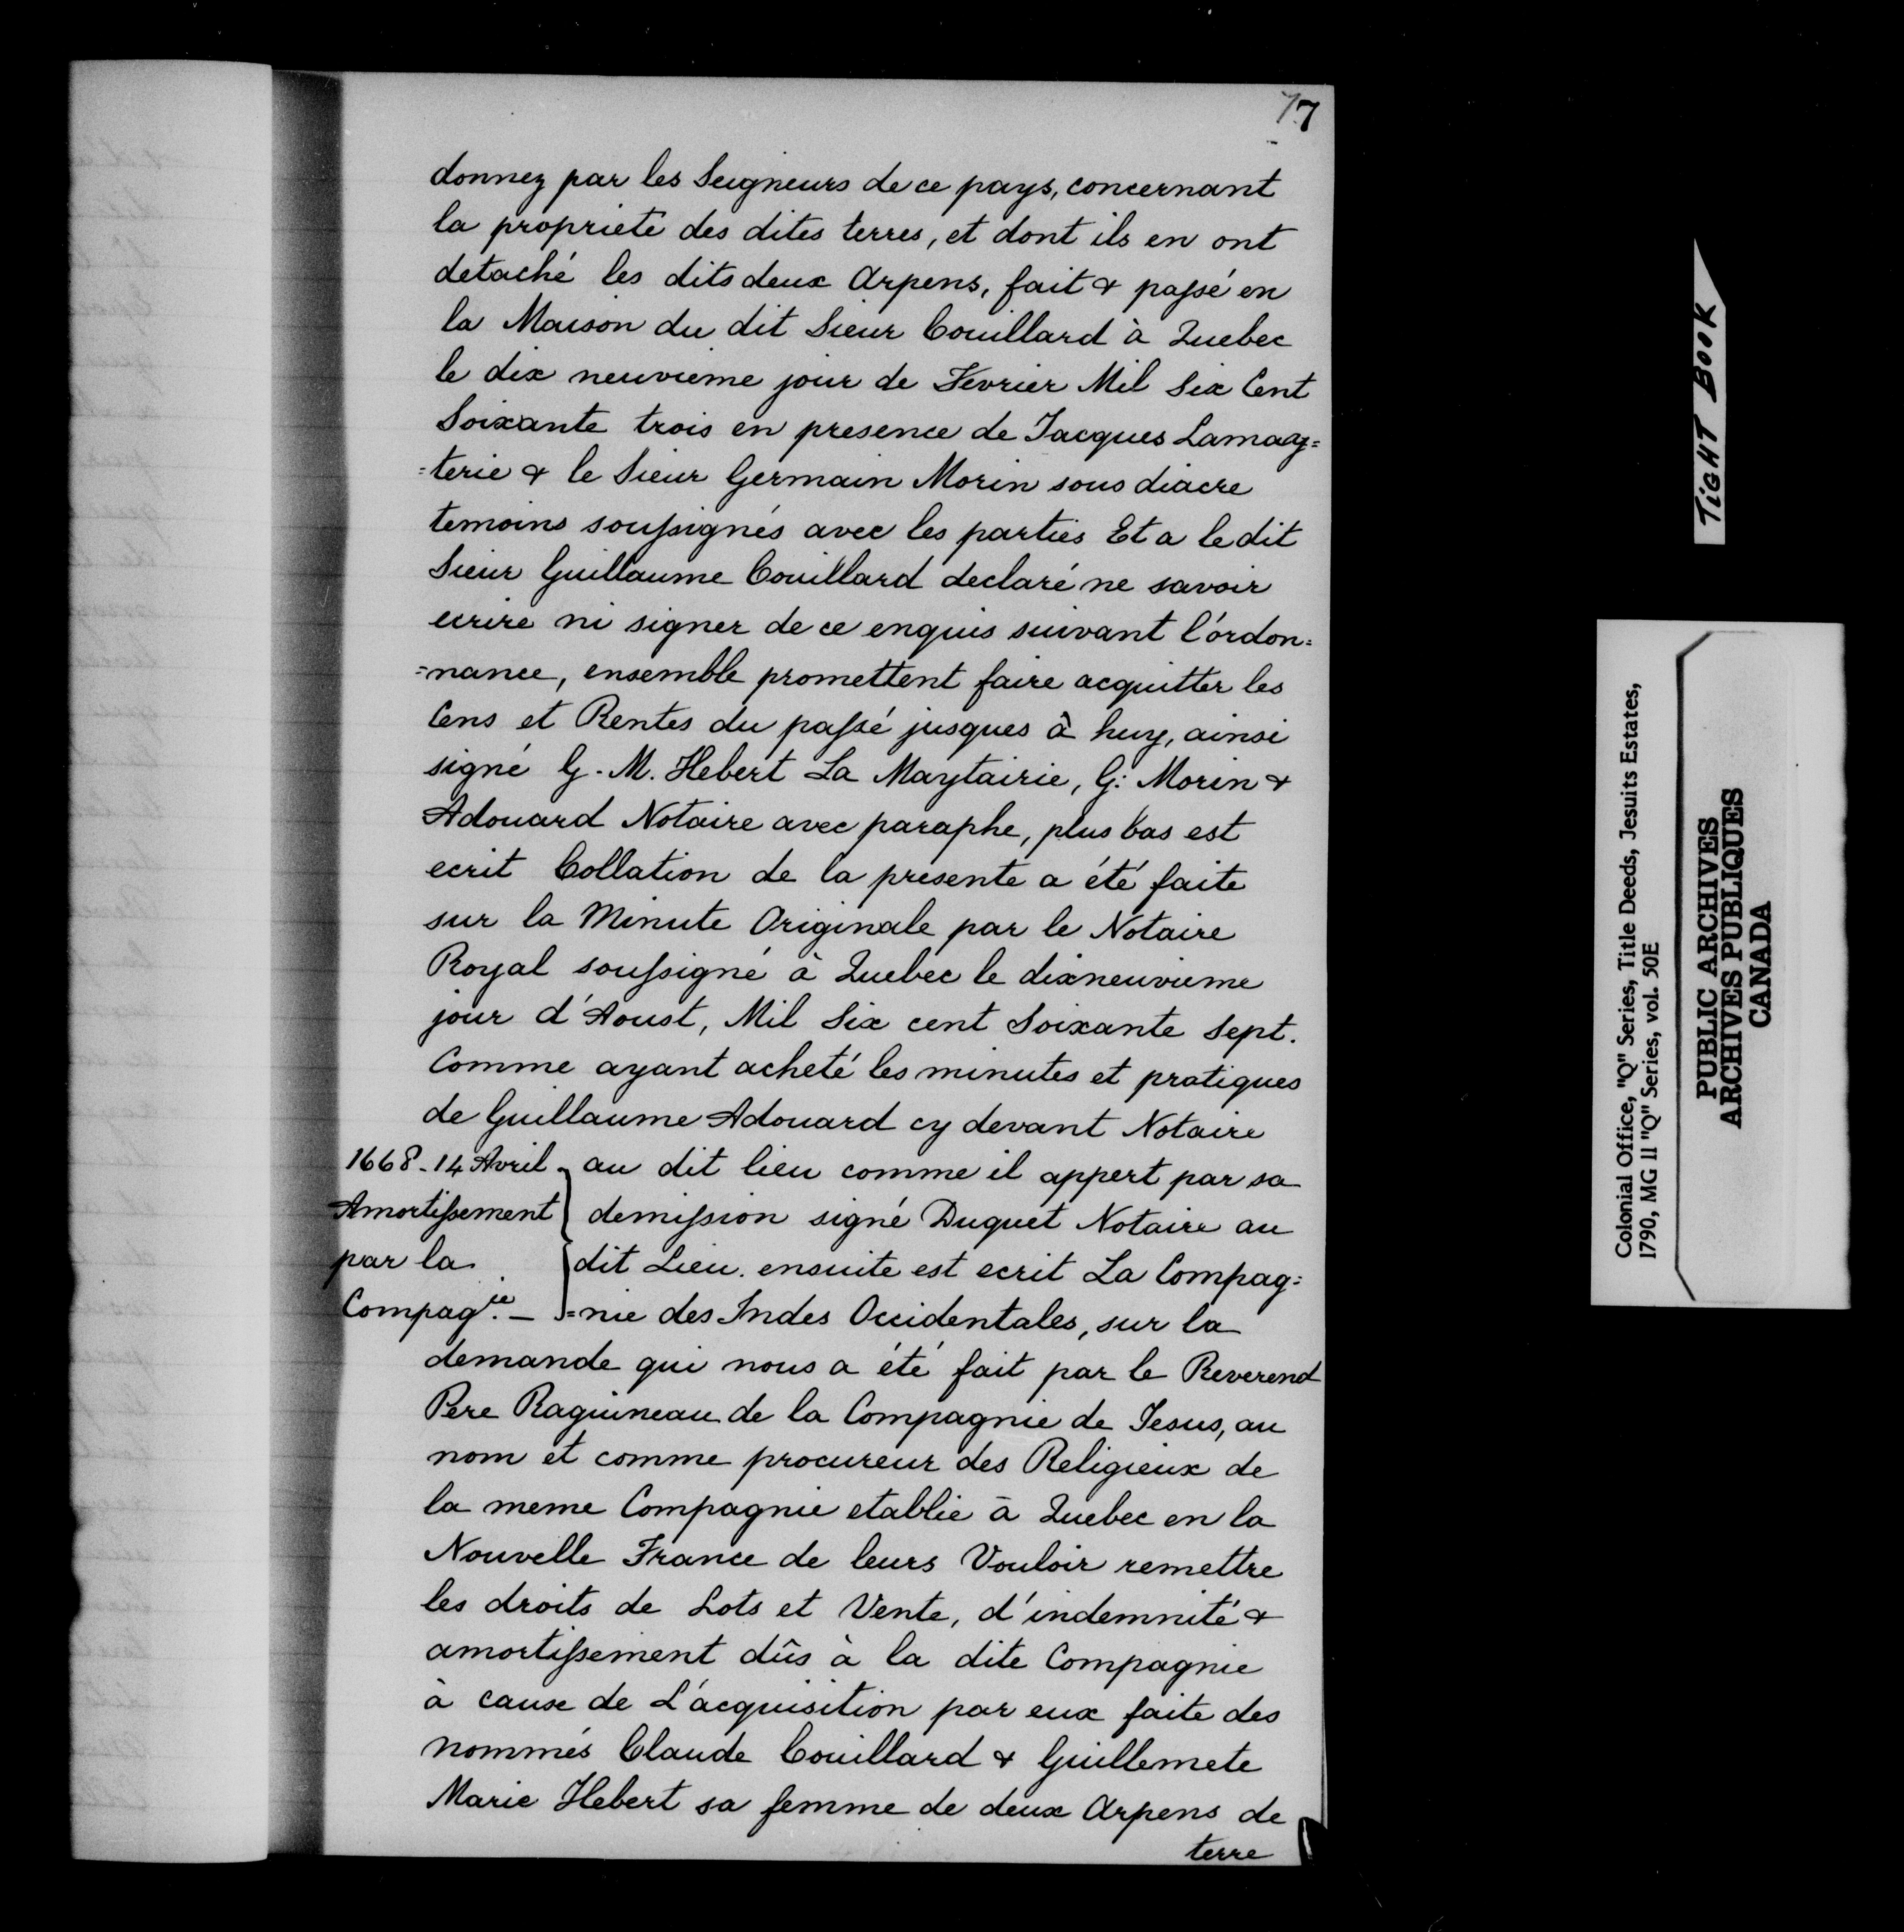 77
donnez par les Seigneurs de ce pays, concernant
la proprieté des dites terres, et dont ils en ont
detaché les dits deux Arpens, fait & passé en
la Maison du dit Sieur Couillard à Quebec
le dix neuvieme jour de Fevrier Mil Six Cent
Soixante trois en presence de Jacques Lamay=
=terie & le Sieur Germain Morin sous diacre
temoins soussignés avec les parties Et a le dit
Sieur Guillaume Couillard declaré ne savoir
ecrire ni signer de ce enquis suivant l'ordon=
=nance, ensemble promettent faire acquitter les
Cens et Rentes du passé jusques à huy, ainsi
signé G. M. Hebert La Maytairie, G: Morin &
Adouard Notaire avec paraphe, plus bas est
ecrit Collation de la presente a été faite
sur la Minute Originale par le Notaire
Royal soussigné à Quebec le dixneuvieme
jour d'Aoust, Mil Six cent Soixante Sept.
Comme ayant acheté les minutes et pratiques
de Guillaume Adouard cy devant Notaire
1668 - 14 Avril
Amortissement
par la
Compag.ie -
au dit lieu comme il appert par sa
demission signé Duquet Notaire au
dit Lieu. ensuite est ecrit La Compag=
=nie des Indes Occidentales, sur la
demande qui nous a été fait par le Reverend
Pere Raguineau de la Compagnie de Jesus, au
nom et comme procureur des Religieux de
la meme Compagnie etablie à Quebec en la
Nouvelle France de leurs Vouloir remettre
les droits de Lots et Vente, d'indemnité &
amortissement dûs à la dite Compagnie
à cause de L'acquisition par eux faite des
nommés Claude Couillard & Guillemete
Marie Hebert sa femme de deux Arpens de
terre
TIGHT BOOK
Colonial Office, "Q" Series, Title Deeds, Jesuits Estates,
1790, MG 11 "Q" Series, vol. 50E
PUBLIC ARCHIVES
ARCHIVES PUBLIQUES
CANADA